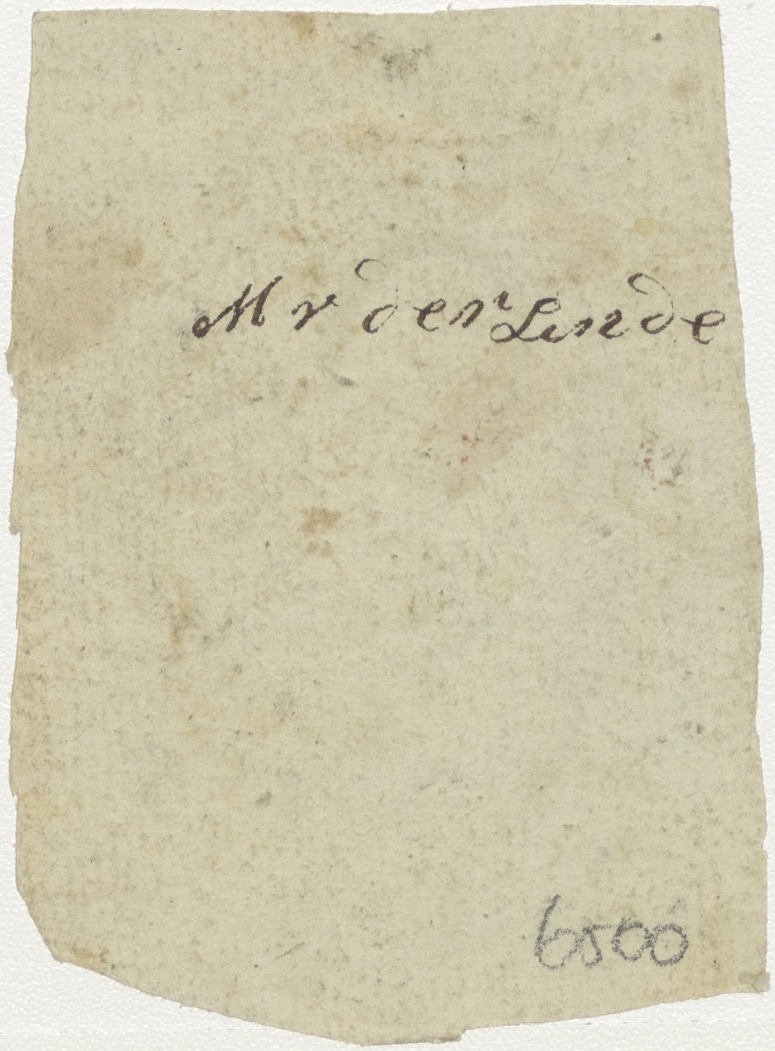 Mr der Linde
6500